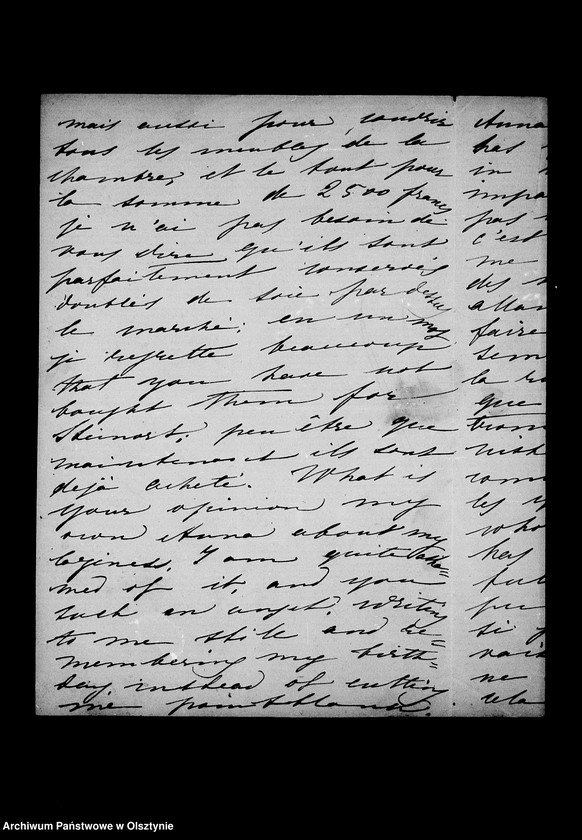 mais aussi pour couvrir
tous les meubles de la
chambre, et le tout pour
la somme de 2500 francs
je n'ai pas besoin de
vous dire qu'ils sont
parfaitement conservés
doublés de soie par dessus
le marché; en un mot
je regrette beaucoup
that you have not
bought them for
Steinort, peu être que
maintenant ils sont
dejà acheté. What is
your opinion my
own Anna about my
laziness, I am quite asha=
med of it, and you
such an angel, writing
to me still and re=
membering my birth=
day instead of cutting
me
Anna
has
in
impo
pas
c'est
me
des
allan
faire
sem
la
que
trom
wish
com
les
who
has
ful
pu
si
vais
ne
Archiwum Państwowe w Olsztynie